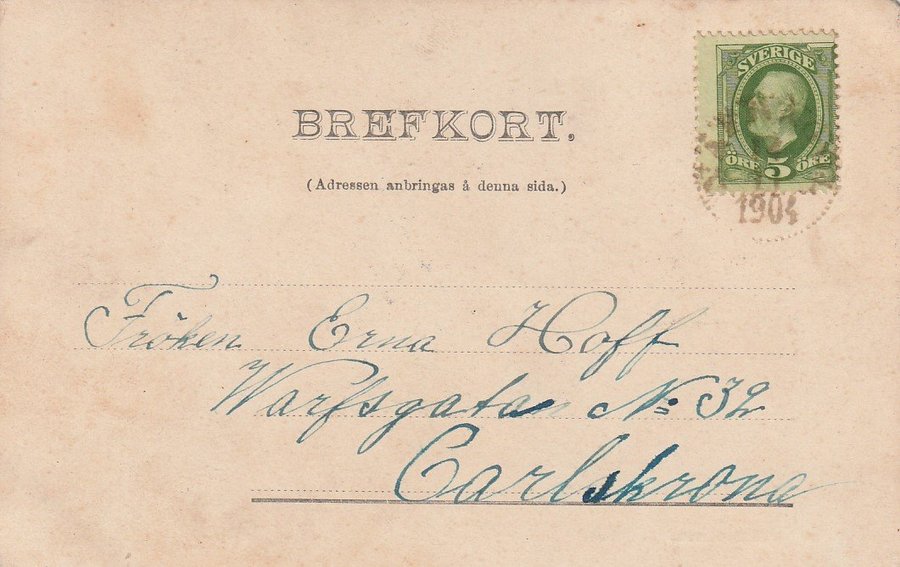 SVERIGE
ÖRE 5 ÖRE
1904
BREFKORT.
(Adressen anbringas å denna sida.)
Fröken Erna Hoff
Warfsgatan No: 32
Carlskrona